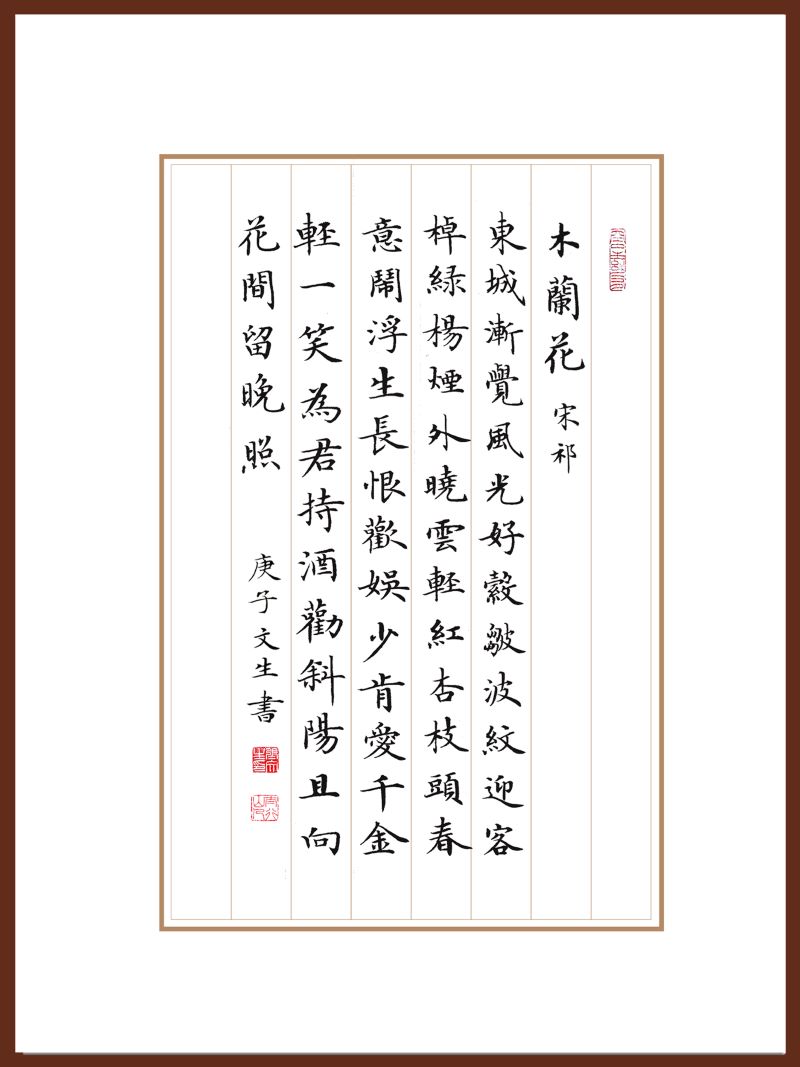 木蘭花 宋祁
東城漸覺風光好縠皺波紋迎客
棹綠楊煙外曉雲輕紅杏枝頭春
意鬧浮生長恨歡娛少肯愛千金
輕一笑為君持酒勸斜陽且向
花間留晚照
庚子文生書